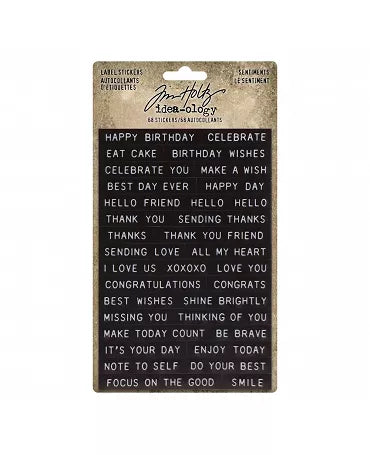 LABEL STICKERS
AUTOCOLLANTS
D'ETIQUETTES
SENTIMENTS
LE SENTIMENT
Tim Holtz
idea-ology
68 STICKERS/68 AUTOCOLLANTS
HAPPY BIRTHDAY CELEBRATE
EAT CAKE BIRTHDAY WISHES
CELEBRATE YOU MAKE A WISH
BEST DAY EVER HAPPY DAY
HELLO FRIEND HELLO HELLO
THANK YOU SENDING THANKS
THANKS THANK YOU FRIEND
SENDING LOVE ALL MY HEART
I LOVE US XOXOXO LOVE YOU
CONGRATULATIONS CONGRATS
BEST WISHES SHINE BRIGHTLY
MISSING YOU THINKING OF YOU
MAKE TODAY COUNT BE BRAVE
IT'S YOUR DAY ENJOY TODAY
NOTE TO SELF DO YOUR BEST
FOCUS ON THE GOOD SMILE